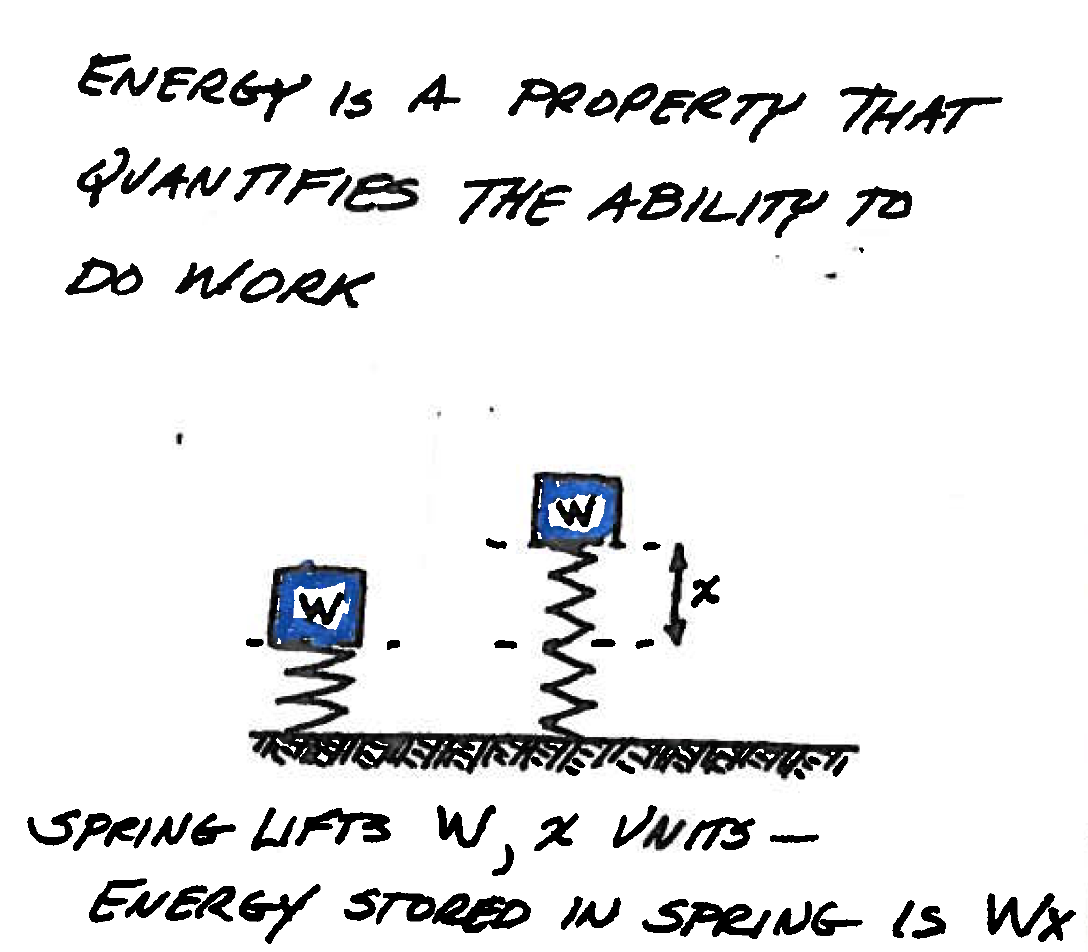 ENERGY IS A PROPERTY THAT
QUANTIFIES THE ABILITY TO
DO WORK
W
W
x
SPRING LIFTS W, x UNITS —
ENERGY STORED IN SPRING IS Wx